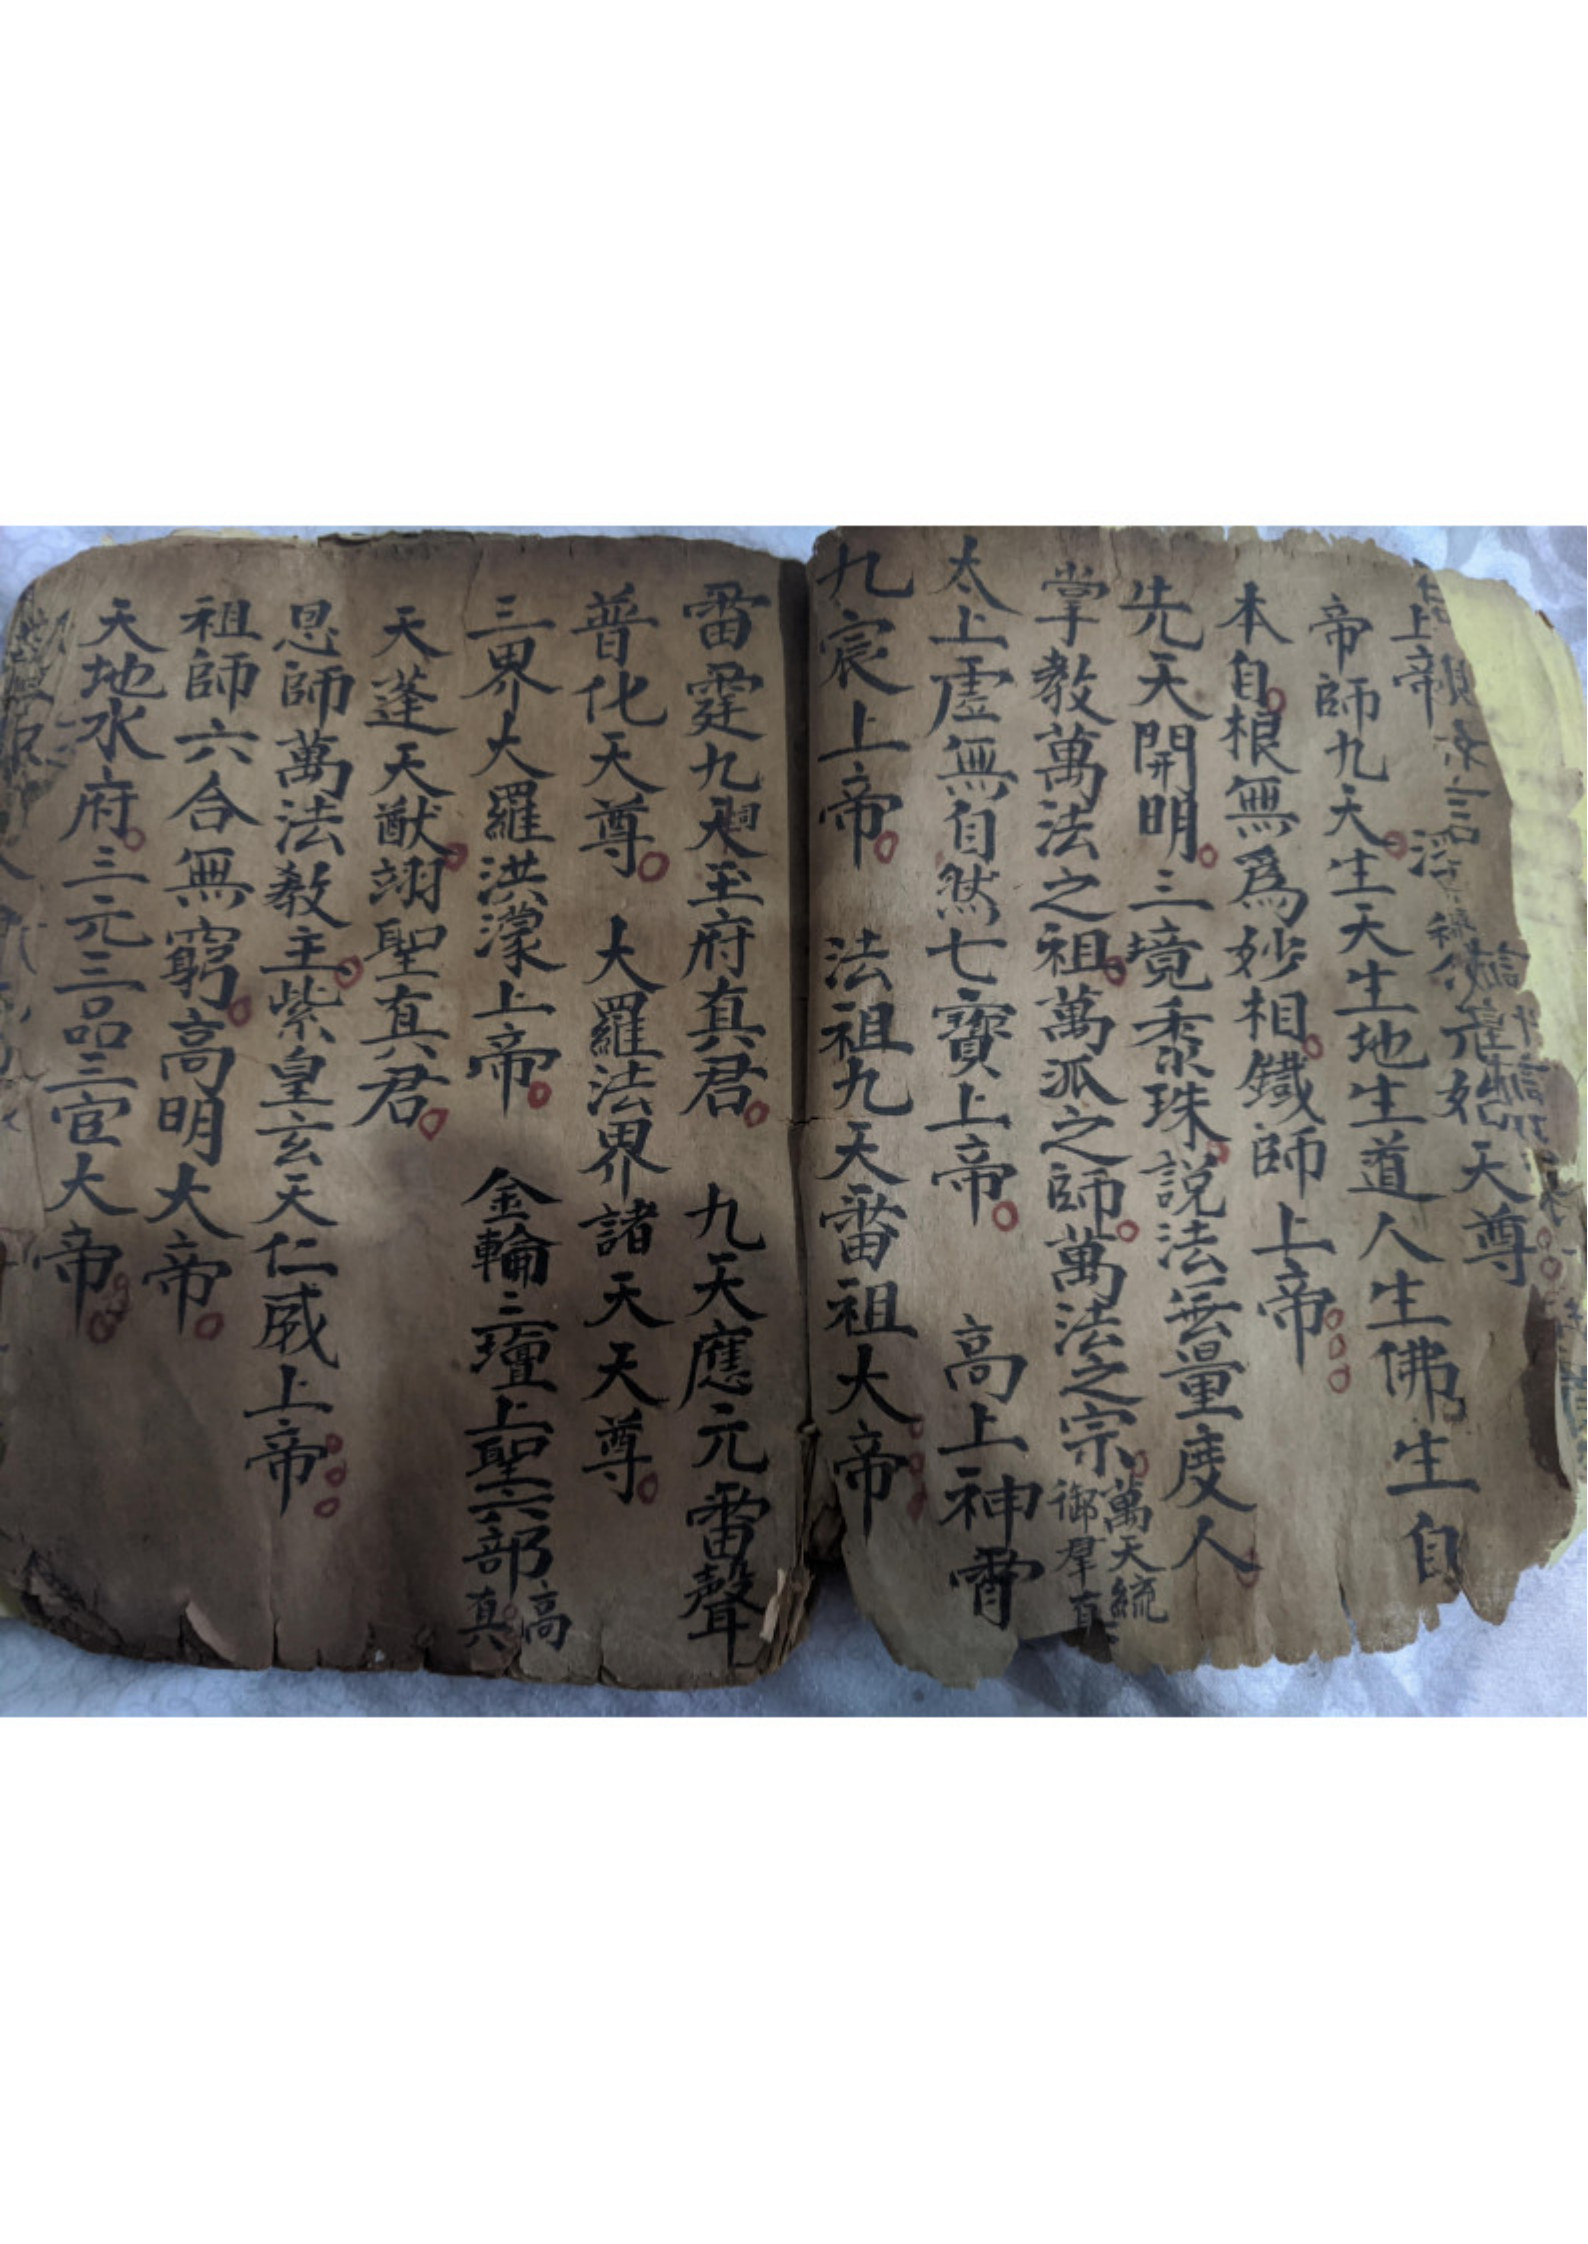 上帝
元始天尊
帝師九天生天生地生道人生佛生自
本自根無爲妙相鐡師上帝
先天開明三境黍珠説法無量度人
掌教萬法之祖萬派之師萬法之宗萬天統御羣真
太上虛無自然七寶上帝 高上神霄
九宸上帝 法祖九天雷祖大帝
雷霆九天王府真君 九天應元雷聲
普化天尊 大羅法界諸天天尊
三界大羅洪濛上帝 金輪三壇上聖六部高真
天蓬天猷翊聖真君
恩師萬法教主紫皇玄天仁威上帝
祖師六合無窮高明大帝
天地水府三元三品三官大帝